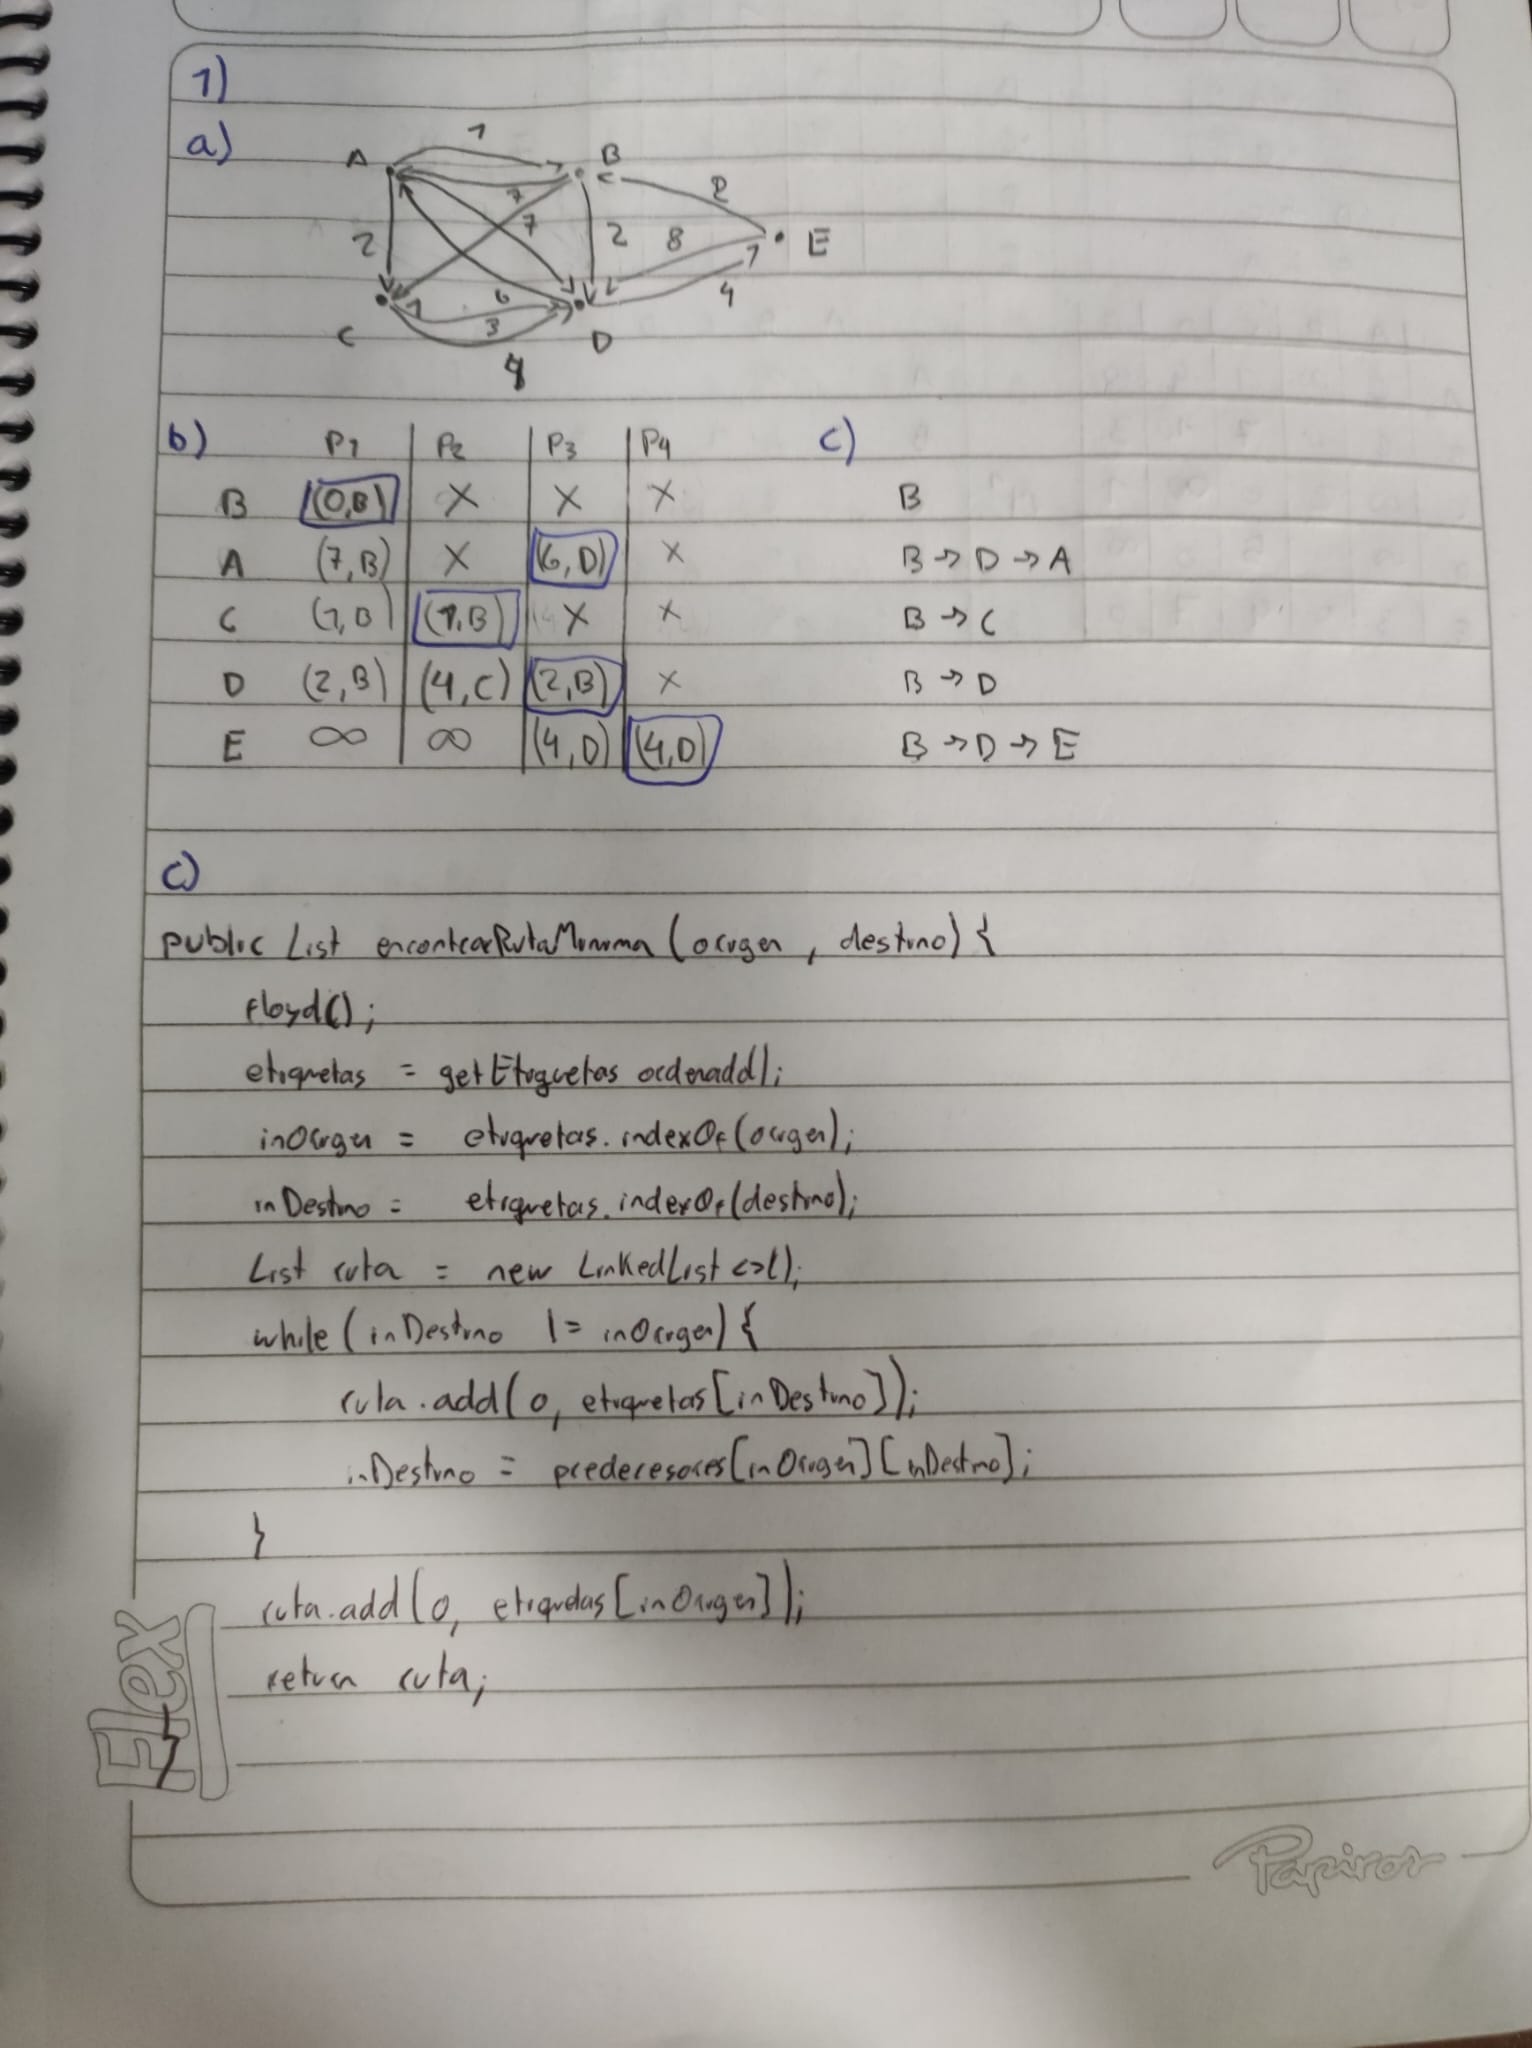 1)
a)
A 1 B
7 2
7
2 2 8 E
6 4
3
C D
4
b) P1 P2 P3 P4 c)
B (0,B) X X X B
A (7,B) X (6,D) X B → D → A
C (1,B) (1,B) X X B → C
D (2,B) (4,C) (2,B) X B → D
E ∞ ∞ (4,D) (4,D) B → D → E
c)
public List encontrarRutaMinima (origen, destino) {
floyd();
etiquetas = getEtiquetas ordenado();
inOrigen = etiquetas.indexOf(origen);
inDestino = etiquetas.indexOf(destino);
List ruta = new LinkedList<>();
while (inDestino != inOrigen) {
ruta.add(0, etiquetas[inDestino]);
inDestino = predecesores[inOrigen][inDestino];
}
ruta.add(0, etiquetas[inOrigen]);
return ruta;
}
Flex
Papiros